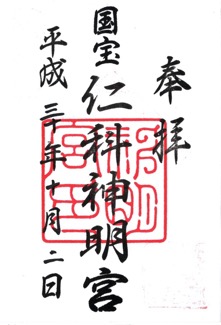 奉拝
国宝 仁科神明宮
平成三十年十月二日